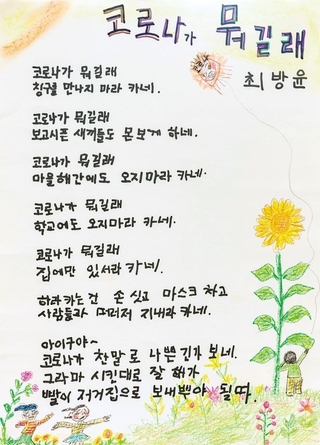 코로나가 뭐길래
최방윤
코로나가 뭐길래
친구를 만나지 마라 카네.
코로나가 뭐길래
보고시픈 새끼들도 몬보게 하네.
코로나가 뭐길래
마을해간에도 오지마라 카네.
코로나가 뭐길래
학교에도 오지마라 카네.
코로나가 뭐길래
집에만 있서라 카네.
하라카는건 손 싯고 마스크 차고
사람들과 떠러저 지내라 카네.
아이구야~
코로나가 참말로 나쁜긴가 보네.
그라마 시킨대로 잘 해가
빨이 저거집으로 보내뿌야 될따.